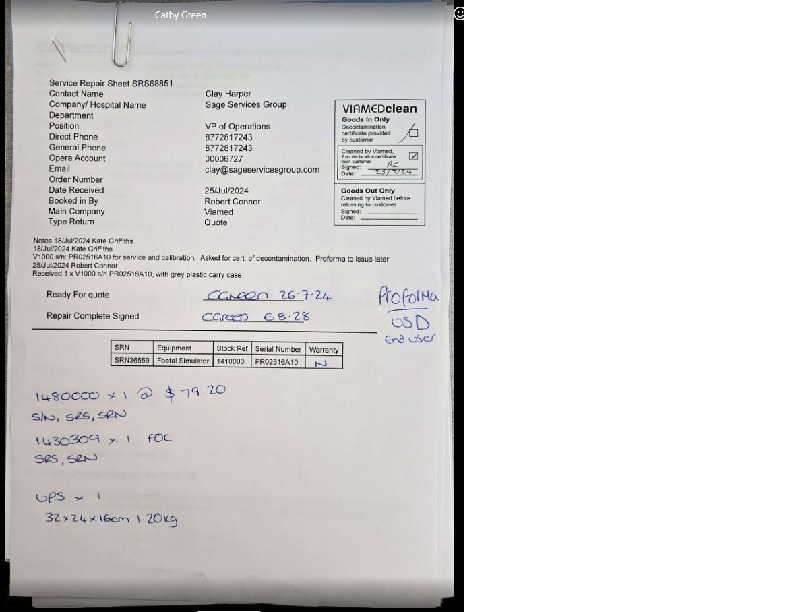 Cathy Green
Service Repair Sheet SRS68851
Contact Name Clay Harper
Company/ Hospital Name Sage Services Group
Department
Position VP of Operations
Direct Phone 8772817243
General Phone 8772817243
Opera Account 00006727
Email clay@sageservicesgroup.com
Order Number
Date Received 25/Jul/2024
Booked in By Robert Connor
Main Company Viamed
Type Return Quote
VIAMEDclean
Goods In Only
Decontamination
certificate provided
by customer
Cleaned by Viamed,
Signed:
Date:
Goods Out Only
Cleaned by Viamed before
returning to customer
Signed:
Date:
Notes 18/Jul/2024 Kate Griffiths
18/Jul/2024 Kate Griffiths
V1000 s/n: PR02516A10 for service and calibration. Asked for cert. of decontamination. Proforma to issue later
25/Jul/2024 Robert Connor
Received 1 x V1000 s/n PR02516A10, with grey plastic carry case.
Ready For quote CGreen 26-7-24
Repair Complete Signed CGreen
Proforma
USD
End user
SRN Equipment Stock Ref Serial Number Warranty
SRN36559 Foetal Simulator 1410000 PR02516A10 N
1480000 x 1 @ $ 79.20
S/N, SRS, SRN
1430309 x 1 FOC
SRS, SRN
UPS x 1
32x24x16cm 1.20kg